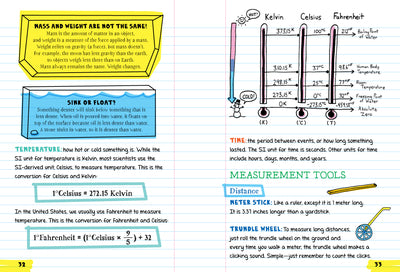 MASS AND WEIGHT ARE NOT THE SAME!
Mass is the amount of matter in an object,
and weight is a measure of the force applied by a mass.
Weight relies on gravity (a force), but mass doesn't.
For example, the moon has less gravity than the earth,
so objects weigh less there than on Earth.
Mass always remains the same. Weight changes.
SINK OR FLOAT?
Something denser will sink below something that is
less dense. When oil is poured into water, it floats on
top of the surface because oil is less dense than water.
A stone sinks in water, so it is denser than water.
TEMPERATURE: how hot or cold something is. While the
SI unit for temperature is Kelvin, most scientists use the
SI-derived unit, Celsius, to measure temperature. This is the
conversion for Celsius and Kelvin:
1°Celsius = 272.15 Kelvin
In the United States, we usually use Fahrenheit to measure
temperature. This is the conversion for Fahrenheit and Celsius:
1°Fahrenheit = (1°Celsius × 9/5) + 32
32
HOT!
COLD!
Kelvin Celsius Fahrenheit
373.15 K 100°C 212°F Boiling Point of Water
310.15 K 37°C Human Body Temperature
25°C Room Temperature
273.15 K 0°C 32°F Freezing Point of Water
0K Absolute Zero
(K) (°C) (°F)
TIME: the period between events, or how long something
lasted. The SI unit for time is seconds. Other units for time
include hours, days, months, and years.
MEASUREMENT TOOLS
Distance
METER STICK: Like a ruler, except it is 1 meter long.
It is 3.37 inches longer than a yardstick.
TRUNDLE WHEEL: To measure long distances,
just roll the trundle wheel on the ground and
every time you walk a meter, the trundle wheel makes a
clicking sound. Simple—just remember to count the clicks.
33